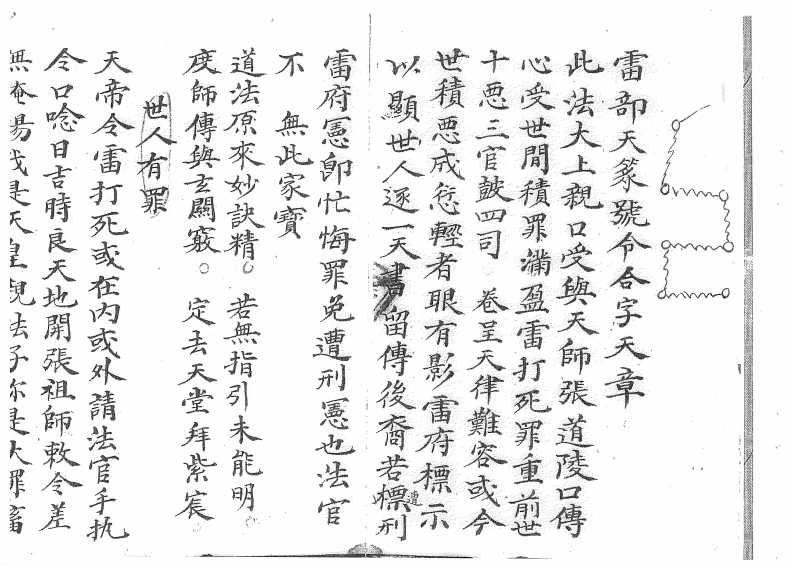 雷部天篆號令合字天章
此法大上親口受與天師張道陵口傳
心受世間積罪滿盈雷打死罪重前世
十悪三官皷四司 卷呈天律難容或今
世積悪成愆輕者眼有影雷府標示
以顯世人逐一天書留傳後裔若遭標刑
雷府憲卽忙悔罪免遭刑憲也法官
不 無此家寶
道法原來妙訣精。 若無指引未能明。
度師傳與玄關竅。 定去天堂拜紫宸
世人有罪
天帝令雷打死或在内或外請法官手执
令口唸日吉時良天地開張祖師敕令差
無 是天皇 法子你是大罪